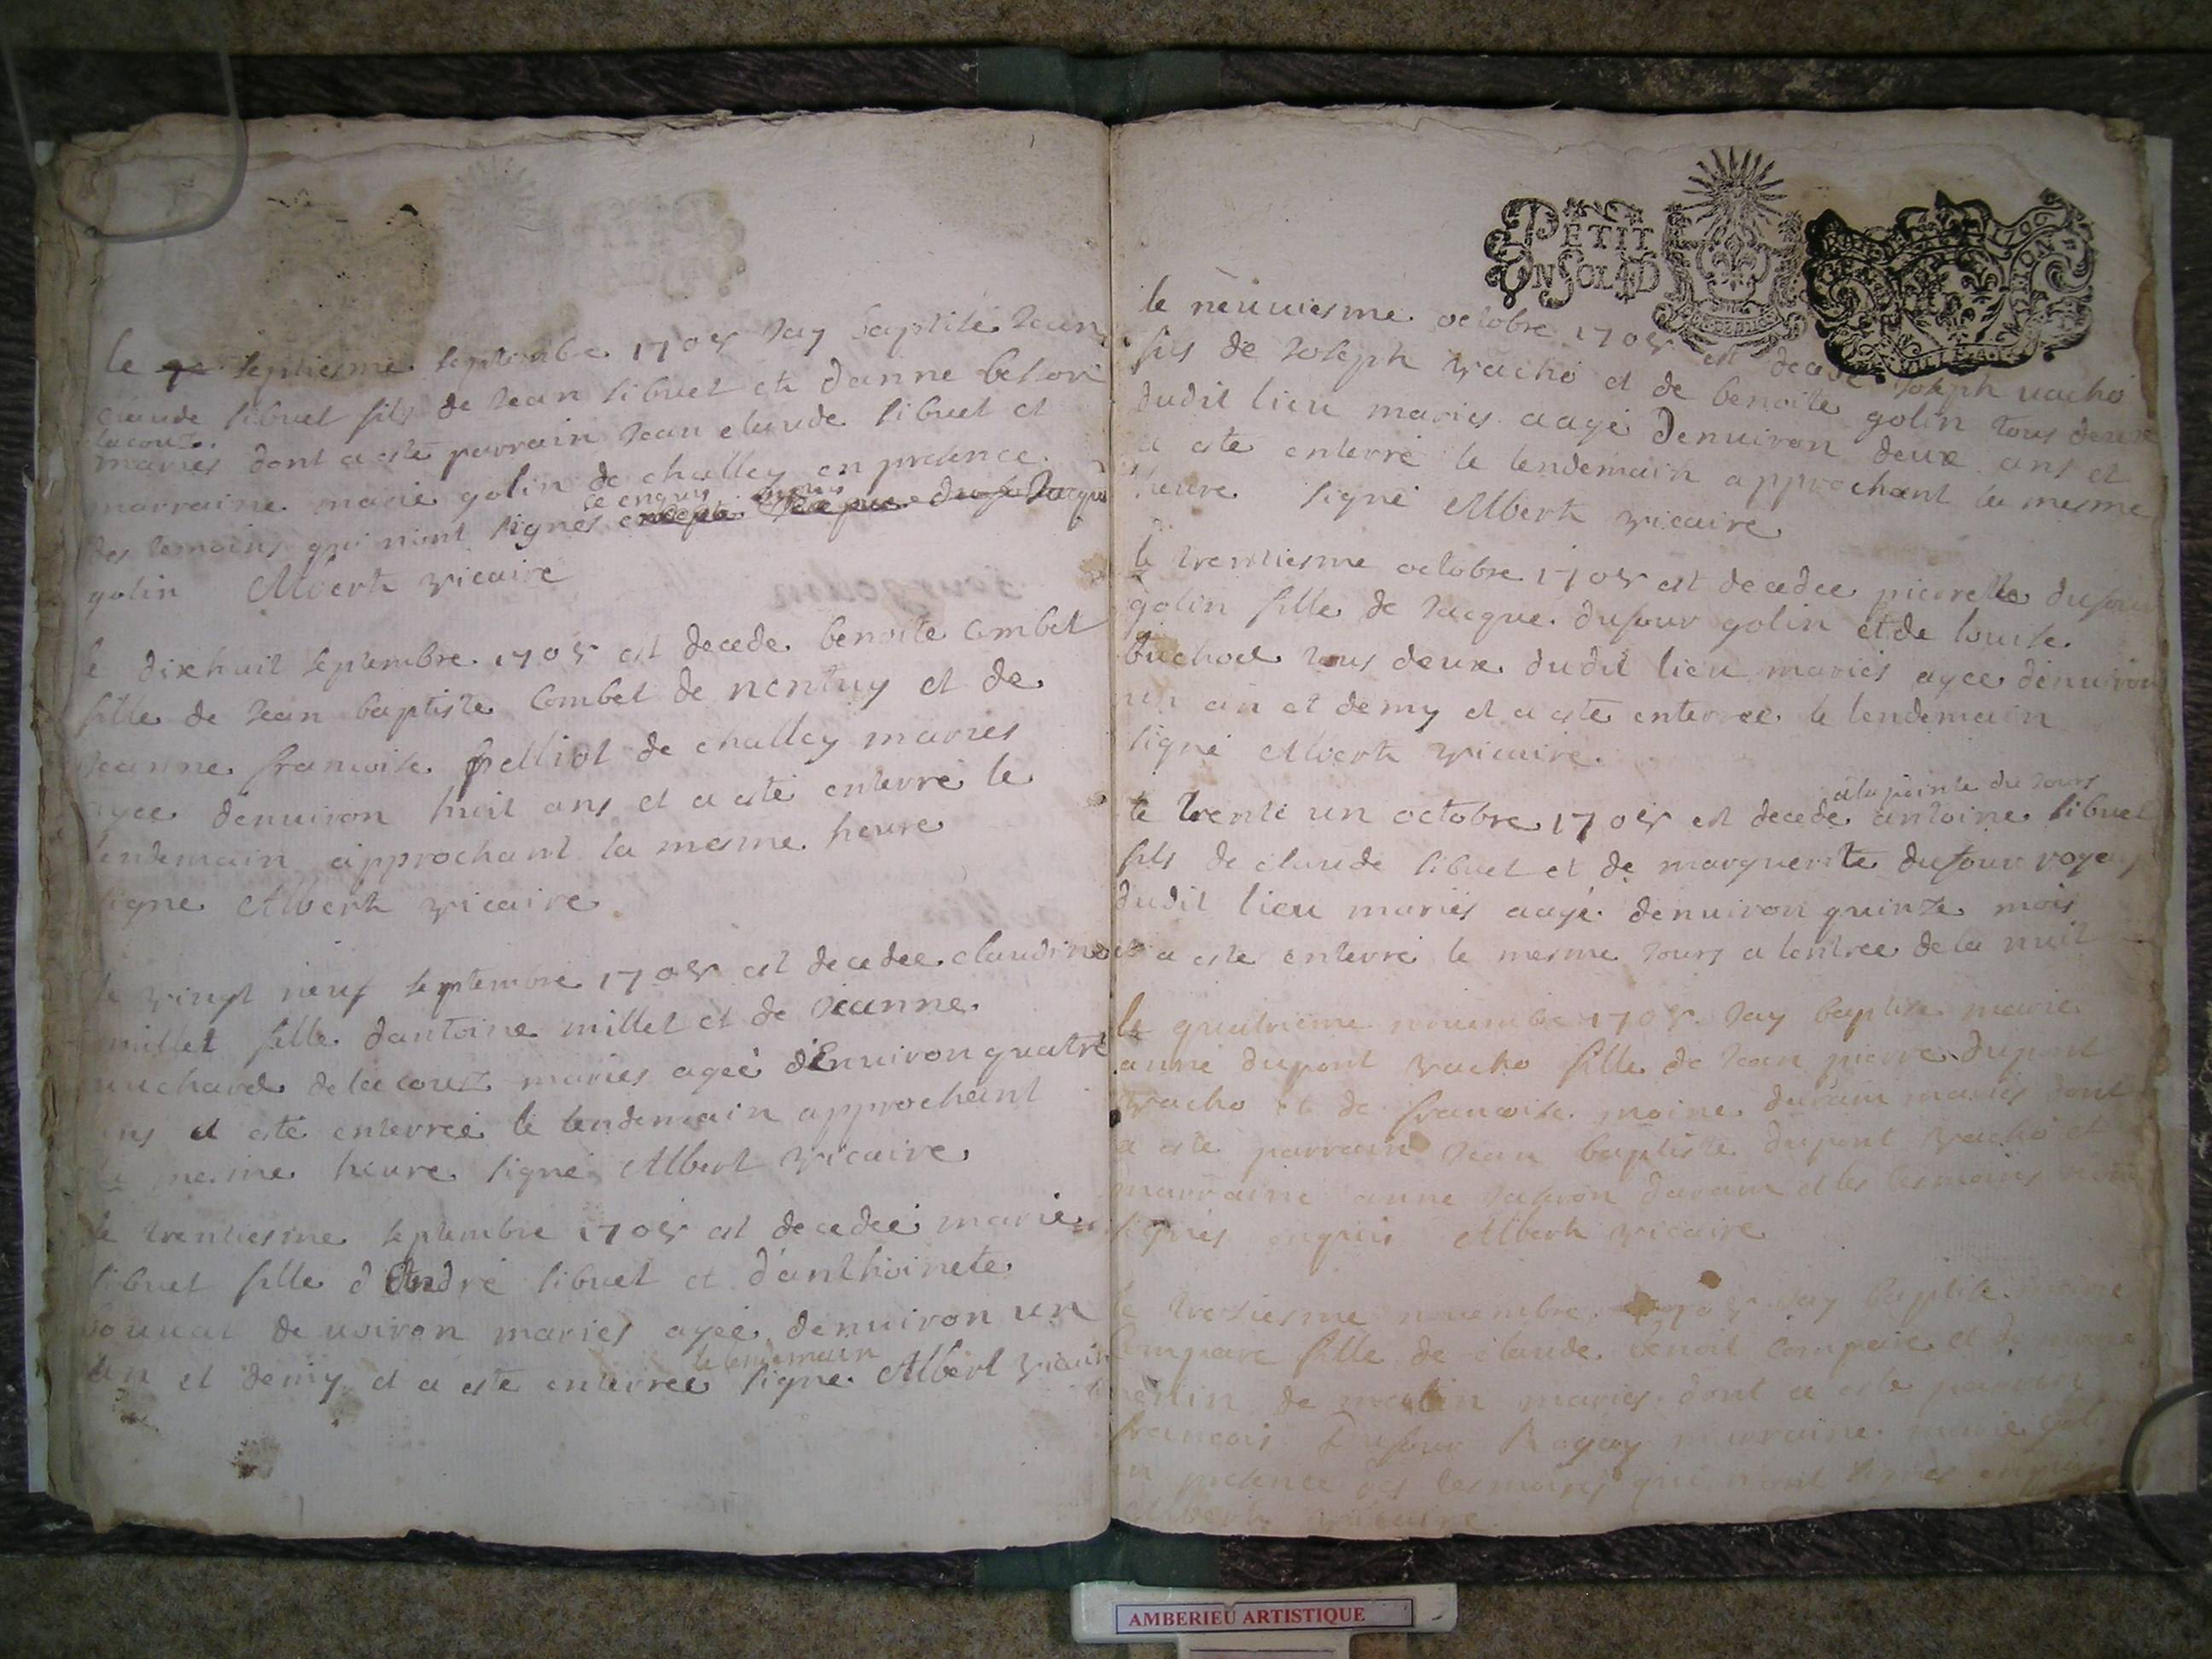 le septiesme septembre 1705 Jay baptisé Jean
claude sibuet fils de Jean sibuet et danne
lacouz
mariés dont a esté parrain Jean claude sibuet et
marraine marie golin de challey en presence
ce enquis
des temoins qui nont signes
golin Alberth vicaire
le dixhuit septembre 1705 est decede benoite Combet
fille de Jean baptiste Combet de nentuy et de
Jeanne francoise de challey maries
agee denuiron huit ans et a esté enterré le
lendemain approchant la mesme heure
signe Alberth vicaire
le vingt neuf septembre 1705 est decedee claudine
millet fille dantoine millet et de Jeanne
de lacouz mariés ageé denuiron quatre
ans et esté enterreé le lendemain approchant
la mesme heure signé Albert vicaire
le trentiesme septembre 1705 est decedeé marie
sibuet fille d André sibuet et d'anthoinete
de maries ageé denuiron un
le lendemain
an et demy et a esté enterree signe Albert vicaire
PETIT
UN SOL
le neuuiesme octobre 1705 est decede Joseph uacho
fils de Joseph vacho et de benoite golin tous deux
dudit lieu maries aagé denuiron deux ans et
a esté enterré le lendemain approchant la mesme
heure signé Alberth vicaire
le trentiesme octobre 1705 est decedee pierrette dufour
golin fille de Jacque dufour golin et de louise
tous deux dudit lieu mariés agee denuiron
un an et demy et a esté enterreé le lendemain
signé Alberth vicaire
a la pointe du Jours
le trente un octobre 1705 est decede antoine sibuet
fils de claude sibuet et de marguerite dufour
dudit lieu mariés aagé denuiron quinze mois
et a esté enterré le mesme Jours a lentree de la nuit
le quatrieme nouembre 1705 Jay baptise marie
anne dupont vacho fille de Jean pierre dupont
vacho et de francoise moine mariés dont
a esté parrain Jean baptiste dupont vacho et
marraine anne et les tesmoins nont
signés enquis Alberth vicaire
le tresiesme nouembre Jay baptisé marie
Compare fille de claude benoit Compare et de
de maries dont a esté parrain
francois Dufour marraine marie
en presence des tesmoins qui nont signés enquis
Alberth vicaire
AMBERIEU ARTISTIQUE